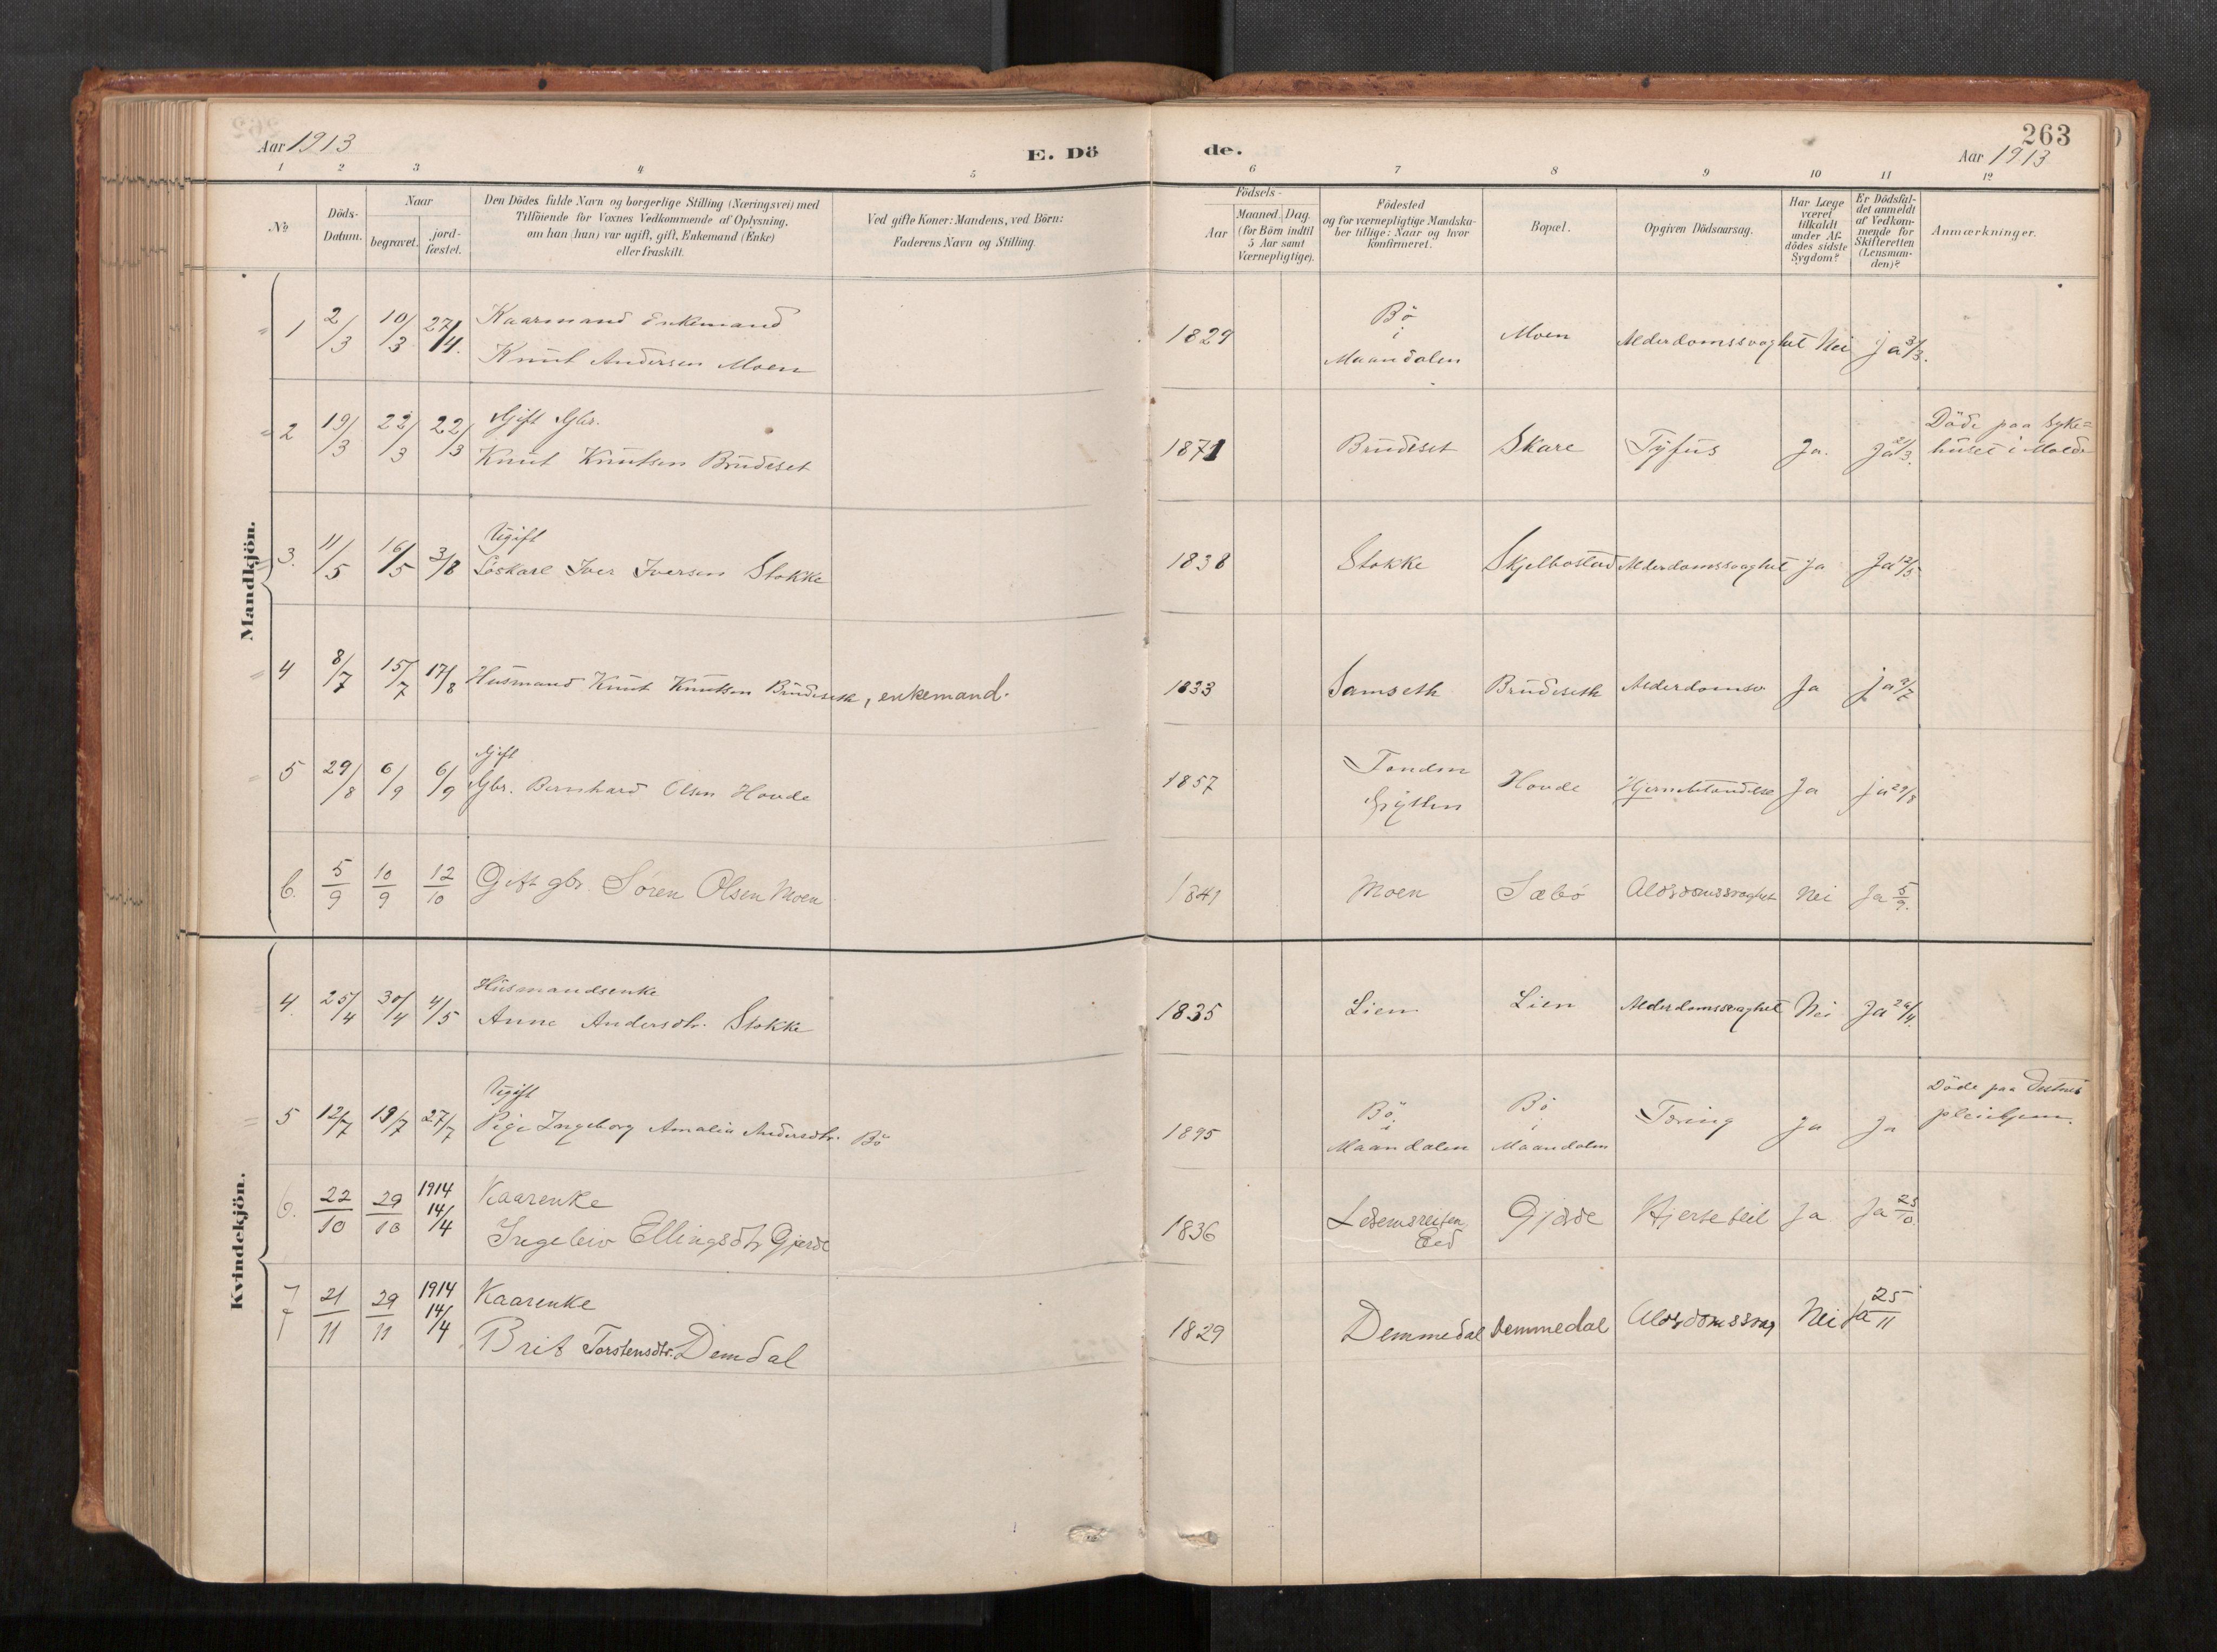 263
Aar 1913
E. Dö
de.
Aar 1913
1 2 3 4 5 6 7 8 9 10 11 12
No
Döds-
Datum.
Naar
begravet.
jord-
fæstet.
Den Dödes fulde Navn og borgerlige Stilling (Næringsvei) med
Tilföiende for Voxnes Vedkommende af Oplysning,
om han (hun) var ugift, gift, Enkemand (Enke)
eller fraskilt.
Ved gifte Koner: Mandens, ved Börn:
Faderens Navn og Stilling.
Födsels-
Aar
Maaned. Dag.
(for Börn indtil
5 Aar samt
Værnepligtige).
Födested
og for værnepligtige Mandska-
ber tillige: Naar og hvor
konfirmeret.
Bopæl.
Opgiven Dödsaarsag.
Har Læge
været
tilkaldt
under Af-
dödes sidste
Sygdom?
Er Dödsfal-
det anmeldt
af Vedkom-
mende for
Skifteretten
(Lensman-
den)?
Anmærkninger.
Mandkjön.
1 2/3 10/3 27/4. Kaarmand Enkemand
Knut Andersen Moen
1829 Bö i Maandalen Moen Alderdomssvaghet Nei ja 3/3.
2 19/3 22/3 22/3 Gift Gbr.
Knut Knutsen Brudeset
1871 Brudeset Skare Tyfus Ja. Ja 21/3. Döde paa Syke=
huset i Molde
3. 11/5 16/5 3/8 Ugift
Löskarl Iver Iversen Stokke
1838 Stokke Skjelbostad Alderdomssvaghet Ja Ja 12/5
4 8/7 15/7 17/8 Husmand Knut Knutsen Brudeseth, enkemand.
1833 Samseth Brudeseth Alderdomsv Ja ja 9/7
5 29/8 6/9 6/9 Gift
Gbr. Bernhard Olsen Hovde
1857 Hovde Ja ja 29/8
6. 5/9 10/9 12/10 Gift gbr. Søren Olsen Moen
1841 Moen Sæbö Aldrdomssvaghet Nei Ja 5/9.
Kvindekjön.
4. 25/4 30/4 4/5 Husmandsenke
Anne Andersdtr. Stokke
1835 Lien Lien Alderdomssvaghet Nei Ja 26/4.
5 12/7 19/7 27/7 Ugift
Pige Ingeborg Amalia Andersdtr. Bö
1895 Bö i Maandalen Bö i Maandalen Tæring Ja Ja Döde paa
pleiehjem.
6. 22/10 29/10 1914 14/4 Kaarenke
Ingeleiv Ellingsdtr Gjerde
1836 Eid Gjerde Hjertefeil Ja Ja 25/10.
7 21/11 29/11 1914 14/4 Kaarenke
Brit Torstensdtr. Demdal
1829 Demmedal Demmedal Aldrdomssvag Nei Ja 25/11